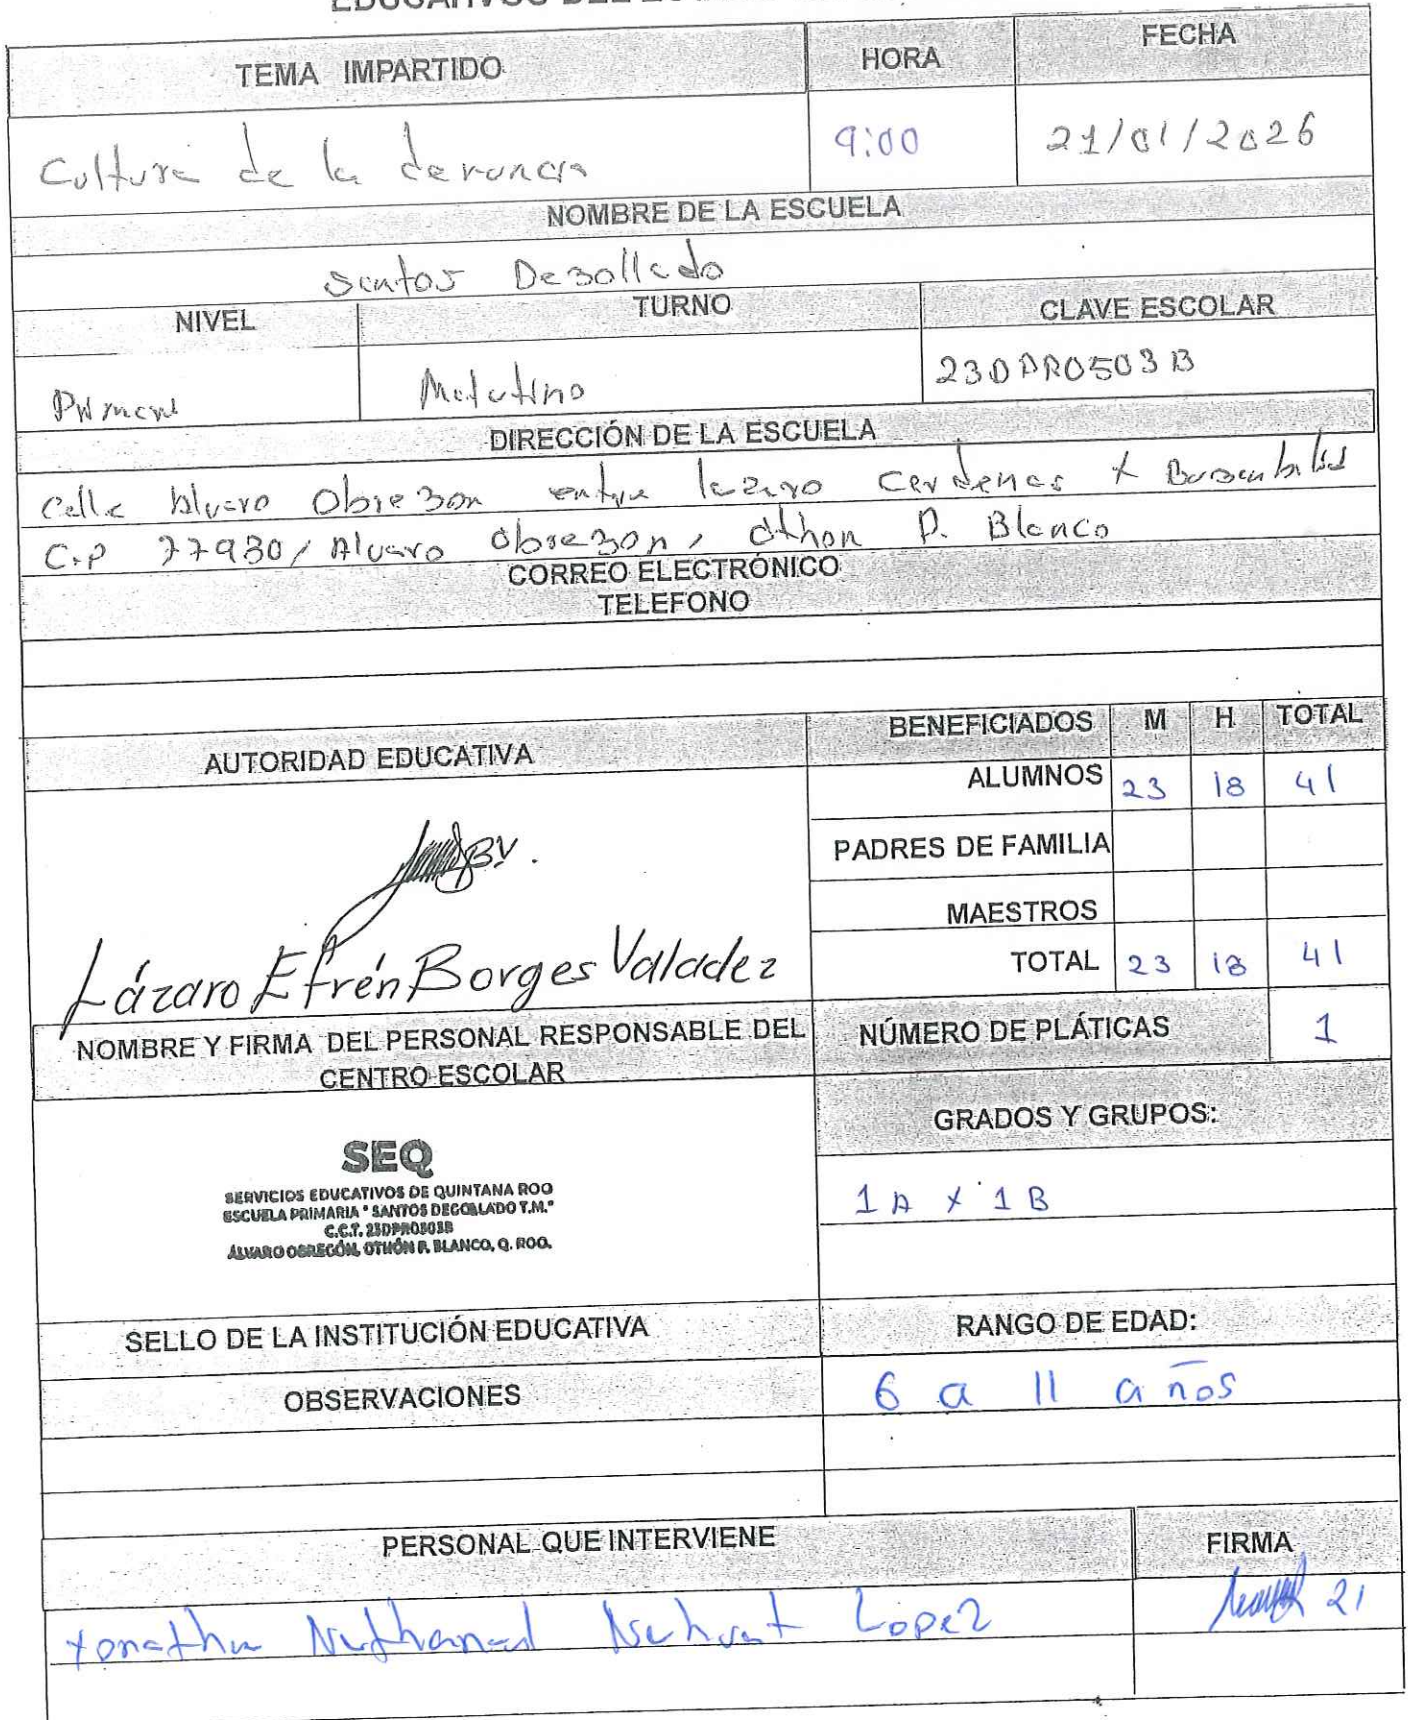 TEMA IMPARTIDO HORA FECHA
Cultura de la denuncia 9:00 21/01/2026
NOMBRE DE LA ESCUELA
Santos Degollado
NIVEL TURNO CLAVE ESCOLAR
Primaria Matutino 23DPR0503B
DIRECCIÓN DE LA ESCUELA
Calle Alvaro Obregon entre lazaro Cardenas y
C.P 77930/ Alvaro obregon, Othon P. Blanco
CORREO ELECTRÓNICO
TELEFONO
AUTORIDAD EDUCATIVA BENEFICIADOS M H TOTAL
ALUMNOS 23 18 41
PADRES DE FAMILIA
MAESTROS
Lázaro Efrén Borges Valadez TOTAL 23 18 41
NOMBRE Y FIRMA DEL PERSONAL RESPONSABLE DEL NÚMERO DE PLÁTICAS 1
CENTRO ESCOLAR
GRADOS Y GRUPOS:
SEQ
SERVICIOS EDUCATIVOS DE QUINTANA ROO
1A y 1B
ESCUELA PRIMARIA "SANTOS DEGOLLADO T.M."
C.C.T. 23DPR0503B
ÁLVARO OBREGÓN, OTHÓN P. BLANCO, Q. ROO.
SELLO DE LA INSTITUCIÓN EDUCATIVA RANGO DE EDAD:
OBSERVACIONES 6 a 11 años
PERSONAL QUE INTERVIENE FIRMA
Yonathan Nathanael López 21